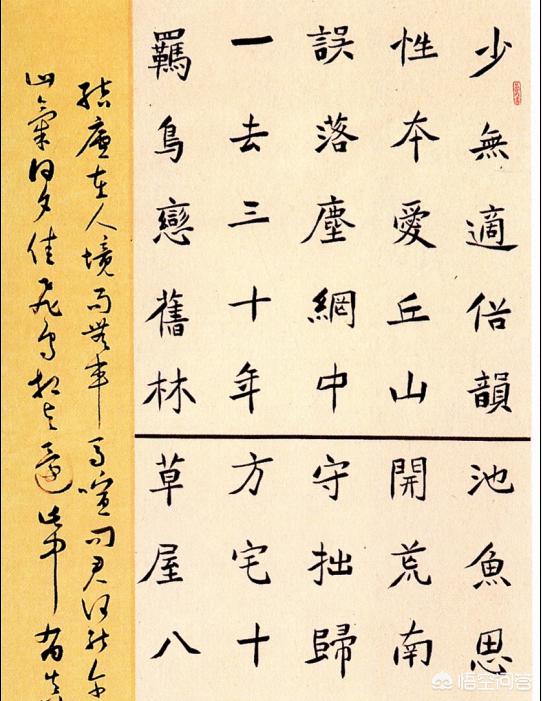 少無適俗韻
性本愛丘山
誤落塵網中
一去三十年
羈鳥戀舊林
池魚思
開荒南
守拙歸
方宅十
草屋八
結廬在人境而無車馬喧問君何能
山氣日夕佳飛鳥相與還此中有
悟空问答